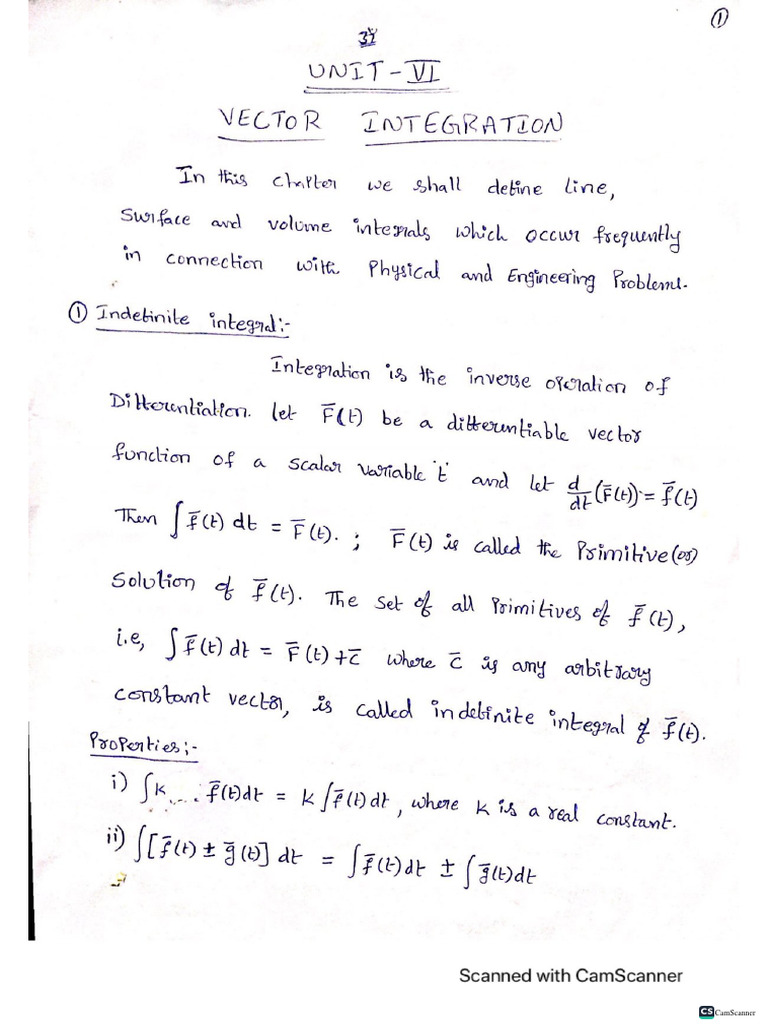 ①
31
UNIT - VI
VECTOR INTEGRATION
In this chapter we shall define line,
Surface and volume integrals which occur frequently
in connection with Physical and Engineering Problems.
① Indefinite integral:-
Integration is the inverse operation of
Differentiation. let F̄(t) be a differentiable vector
function of a scalar variable 't' and let d/dt (F̄(t)) = f̄(t)
Then ∫ f̄(t) dt = F̄(t). ; F̄(t) is called the Primitive (or)
Solution of f̄(t). The set of all Primitives of f̄(t),
i.e, ∫ f̄(t) dt = F̄(t) + c̄ where c̄ is any arbitrary
constant vector, is called indefinite integral of f̄(t).
Properties:-
i) ∫ k f̄(t) dt = k ∫ f̄(t) dt, where k is a real constant.
ii) ∫ [f̄(t) ± ḡ(t)] dt = ∫ f̄(t) dt ± ∫ ḡ(t) dt
Scanned with CamScanner
CS CamScanner